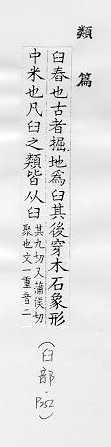 類篇
臼舂也古者掘地爲臼其後穿木石象形
中米也凡臼之類皆从臼
其九切又蒲侯切
聚也文一重音二
(臼部・P252)